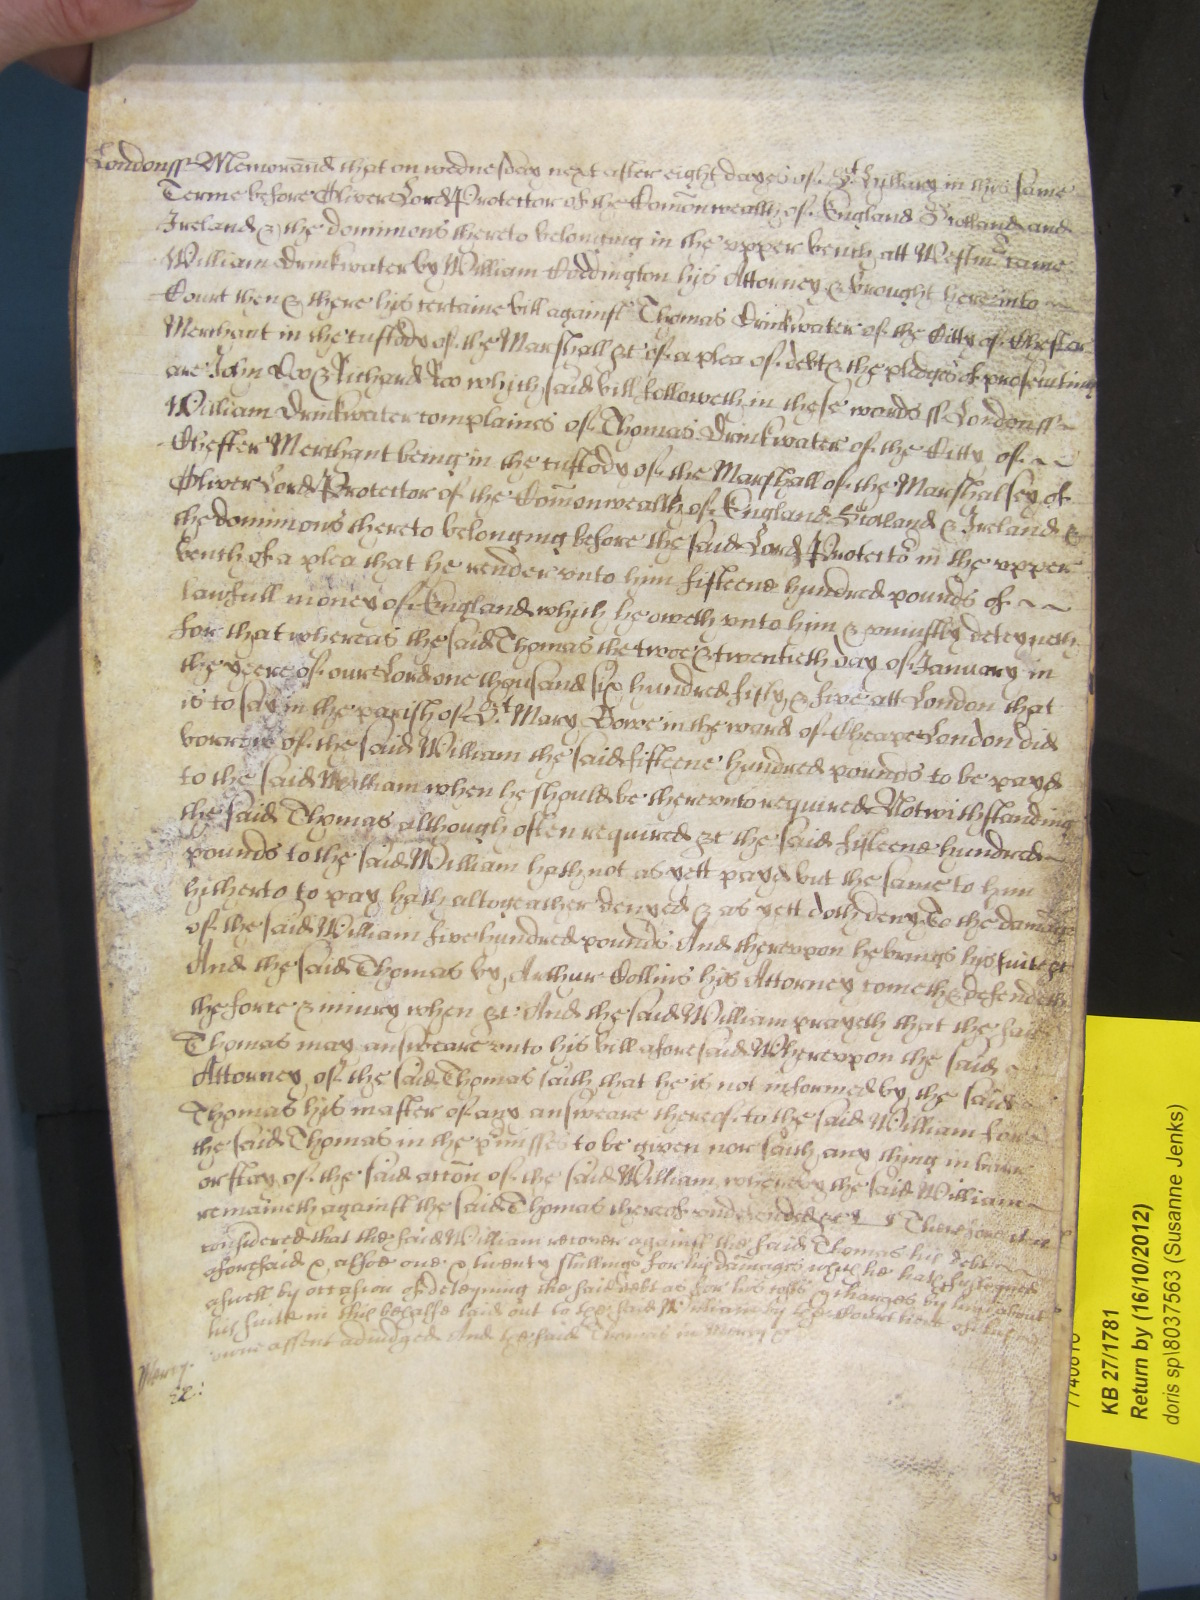 Londonss Memorand that on wednesday next after eight dayes of St. Hyllary in this same
Terme before Oliver Lord Protector of the Comonwealth of England Scotland and
Ireland & the dominions thereto belonging in the upper bench att Westmr came
William Drinkwater by William Coddington his Attorney & brought here into
Court then & there his certaine bill against Thomas Drinkwater of the Citty of Chester
Merchant in the custody of the Marshall &c of a plea of debt & the pledges of prosecuting
are John Doo & Richard Roo which said bill followeth in these words ss Londonss
William Drinkwater complaines of Thomas Drinkwater of the Citty of
Chester Merchant being in the custody of the Marshall of the Marshalsey of
Oliver Lord Protector of the Comonwealth of England Scotland & Ireland &
the dominions thereto belonging before the said Lord Protector in the upper
bench of a plea that he render unto him fifteene hundred pounds of
lawfull money of England which he oweth unto him & uniustly deteyneth
for that whereas the said Thomas the twoe & twentieth day of January in
the yeere of our Lord one thousand six hundred fifty & five att London that
is to say in the parish of St. Mary Bowe in the ward of Cheape London did
borrow of the said William the said fifteene hundred pounds to be payd
to the said William when he should be thereunto required Notwithstanding
the said Thomas although often required &c the said fifteene hundred
pounds to the said William hath not as yett payd but the same to him
hitherto to pay hath altogeather denyed & as yett doth deny To the damage
of the said William five hundred pounds And thereupon he brings his suite &c
And the said Thomas by Arthur Collins his Attorney cometh & defendeth
the force & iniury when &c And the said William prayeth that the said
Thomas may answeare unto his bill aforesaid Whereupon the said
Attorney of the said Thomas saith that he is not informed by the said
Thomas his master of any answeare thereof to the said William for
the said Thomas in the pmisses to be given nor saith any thing in barre
or stay of the said accon of the said William whereby the said William
remaineth against the said Thomas thereof undefended &c Therefore it is
considered that the said William recover against the said Thomas his debt
aforesaid & alsoe one & twenty shillings for his damages which he hath susteyned
aswell by occasion of deteyning the said debt as for his costs & charges by him about
his suite in this behalfe laid out to the said William by the Court here of his
owne assent adiudged And the said Thomas in Mercy &c
Mercy.